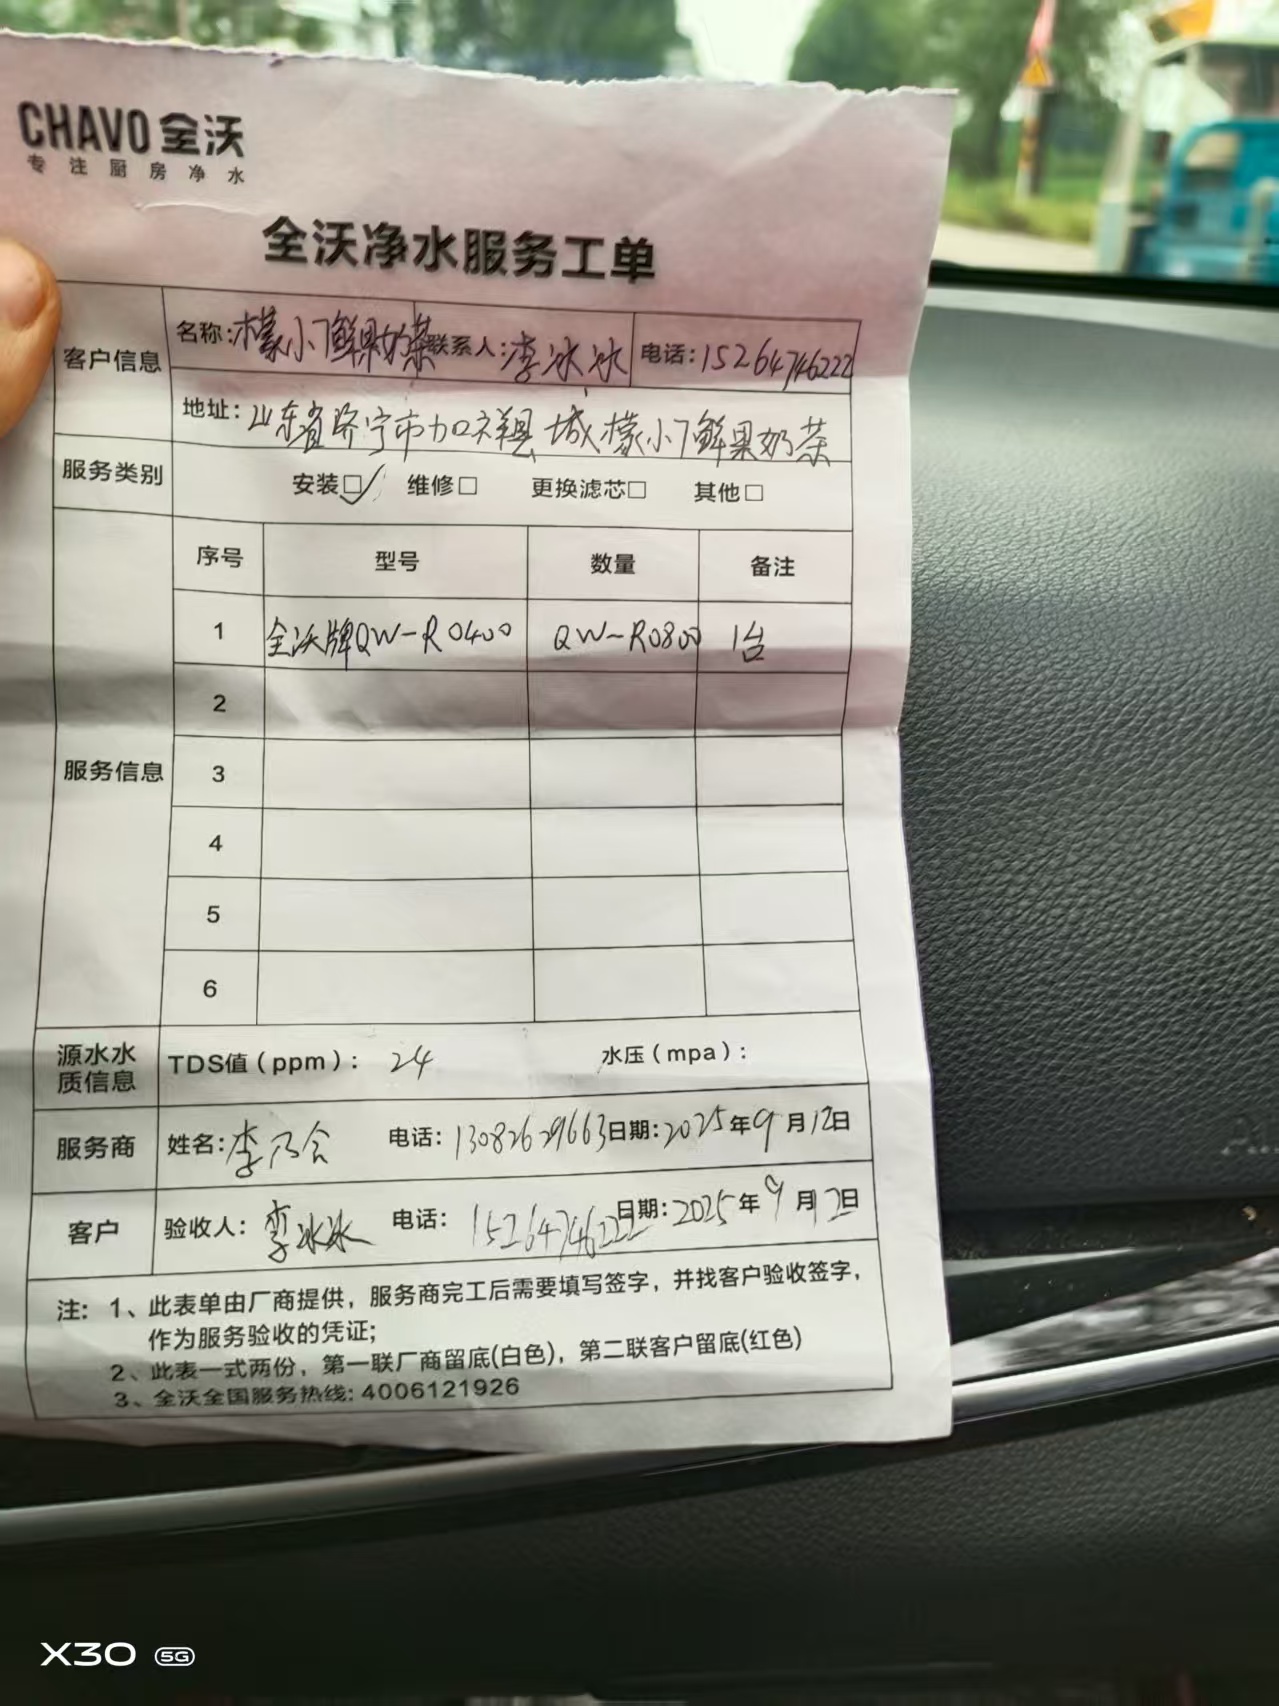 CHAVO 全沃
专注厨房净水
全沃净水服务工单
客户信息
名称:檬小丁鲜果奶茶 联系人:李冰冰 电话:15264746222
地址:山东省济宁市加祥县城檬小丁鲜果奶茶
服务类别 安装☑ 维修□ 更换滤芯□ 其他□
服务信息
序号 型号 数量 备注
1 全沃牌QW-RO400 QW-RO800 1台
2
3
4
5
6
源水水质信息 TDS值(ppm): 24 水压(mpa):
服务商 姓名:李乃会 电话:13082629663 日期:2025年9月12日
客户 验收人:李冰冰 电话:15264746222 日期:2025年9月12日
注: 1、此表单由厂商提供，服务商完工后需要填写签字，并找客户验收签字，
作为服务验收的凭证;
2、此表一式两份，第一联厂商留底(白色)，第二联客户留底(红色)
3、全沃全国服务热线: 4006121926
X30 5G